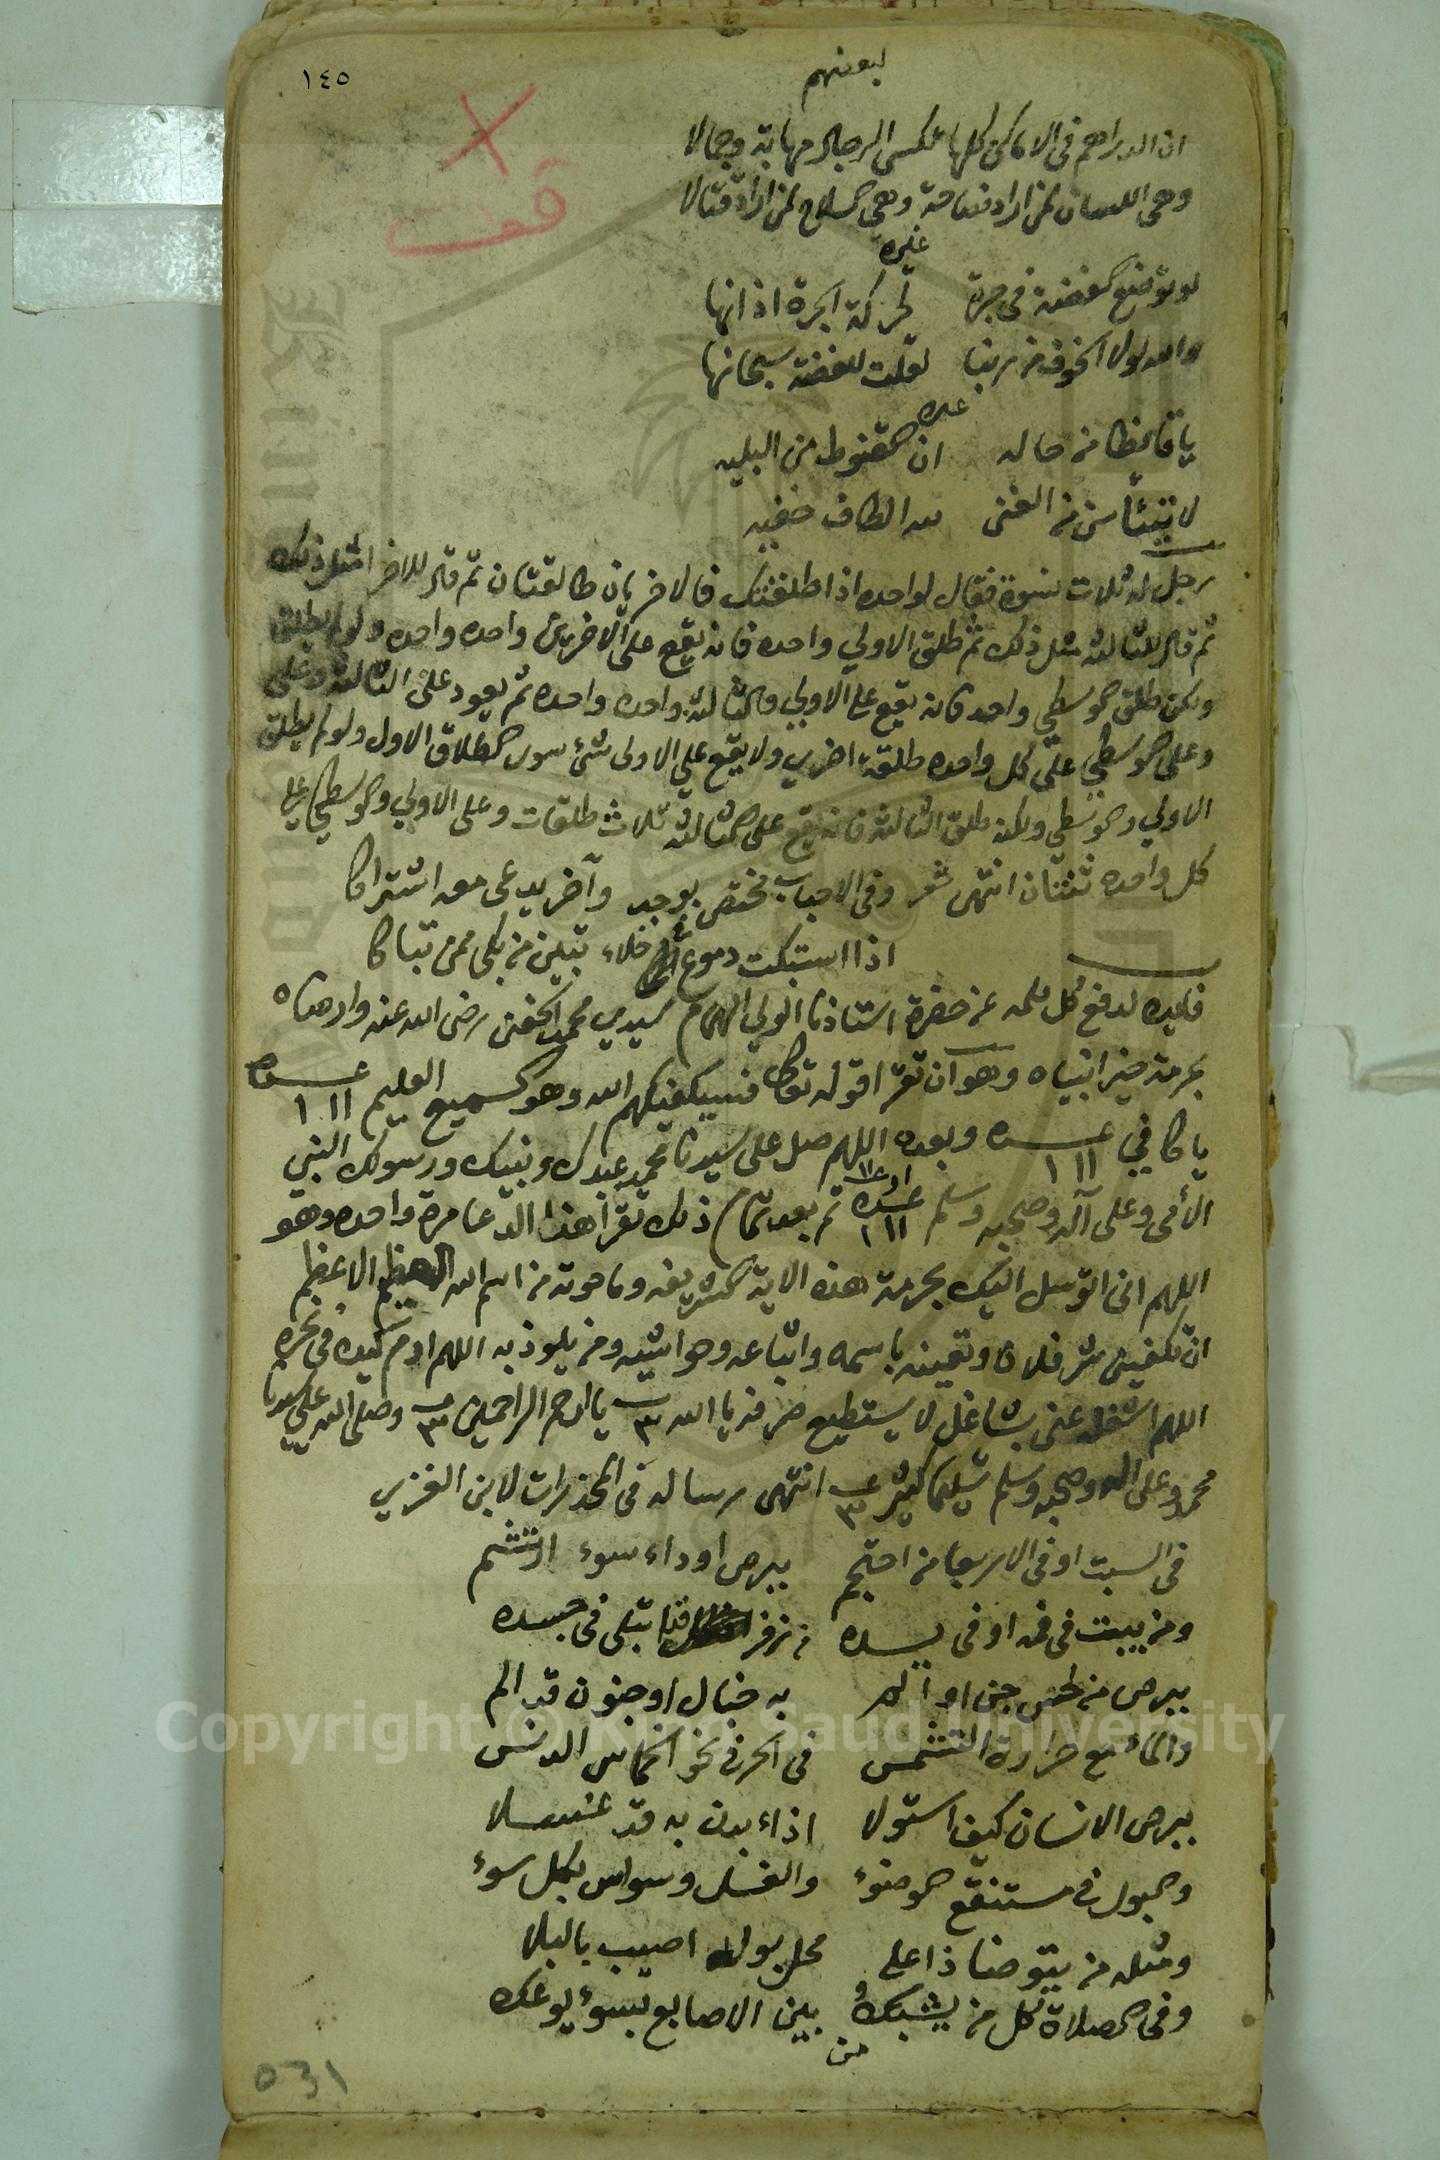 ١٤٥
لبعضهم
ان الدراهم فى الاماكن كلها تكسى الرجال مهابة وجمالا
وهى اللسان لمن اراد فصاحة وهى السلاح لمن اراد قتالا
قف
غيره
لو توضع الفضة فى جرة لحركة الجرة اذانها
والله لولا الخوف من ربنا لقلت للفضة سبحانها
غيره
يا قانطا من حاله ان القنوط من البليه
لا تيئاسن من الغنى لله الطاف خفيه
رجل له ثلاث نسوة فقال لواحده اذا طلقتك فالاخريان طالقتان ثم قال للاخرا مثل ذلك
ثم قال للثالثه مثل ذلك ثم طلق الاولي واحده فانه يقع على الاخريتين واحده واحده ولو لم يطلق
ولكن طلق الوسطي واحد فانه يقع على الاولي والثالثة واحده واحده ثم يعود على الثالثه وعلى
وعلى الوسطي على كل واحده طلقة اخري ولا يقع علي الاولى شئ سوى الطلاق الاول ولو لم يطلق
الاولي والوسطي ولكنه طلق الثالثه فانه يقع على الثالثة ثلاث طلقات وعلى الاولي والوسطي على
كل واحده ثنتان انتهى شعر وفى الاحباب مختص بوجد وآخر يدعى معه اشتراكا
اذا استبكت دموع فى خلاء تبين من بكى ممن تباكا
فايده لدفع كل ملمه عن حضرة استاذنا الولي الهمام سيدي محمد الحفنى رضى الله عنه وارضاه
بحرمة خير انبياه وهو ان تقرا قوله تعالى فسيكفيكهم الله وهو السميع العليم عدده ١١١
يا كافي عدده ١١١ وبعده اللهم صل على سيدنا محمد عبدك ونبيك ورسولك النبي
الأمى وعلى آله وصحبه وسلم عدده ١١١ ثم بعد تمام ذلك تقرأ هذا الدعا مرة واحده وهو
اللهم انى اتوسل اليك بحرمة هذه الاية الشريفه وما حوته من اسم الله العظيم الاعظم
ان تكفينى شر فلان وتعينه باسمه واتباعه وحواشيه ومن يلوذ به اللهم ارم كيده فى نحره
اللهم اشغله عنى بشاغل لا يستطيع صرفه يا الله ٣ يا ارحم الراحمين ٣ وصلى الله على سيدنا
محمد وعلى اله وصحبه وسلم تسليما كثيرا ٣ انتهى رساله فى المحذرات لابن الغزي
فى السبت او فى الاربعا من احتجم ببرص او داء سوء ارتشم
ومن يبت فى فمه او فى يده من زفر قد ابتلى فى جسده
ببرص من لحس جن او المر به خبال او جنون قد الم
والماء مع حرارة التشمس فى الحر فى نحو النحاس الدنس
ببرص الانسان كيف استولا اذاء بدن به قد غسلا
والبول فى مستنقع الوضوء والغسل وسواس بكل سوء
ومثله من يتوضا ذا على محل بوله اصيب بالبلا
وفى الصلاة كل من يشبك بين الاصابع بسوء يوعك
من
Copyright © King Saud University